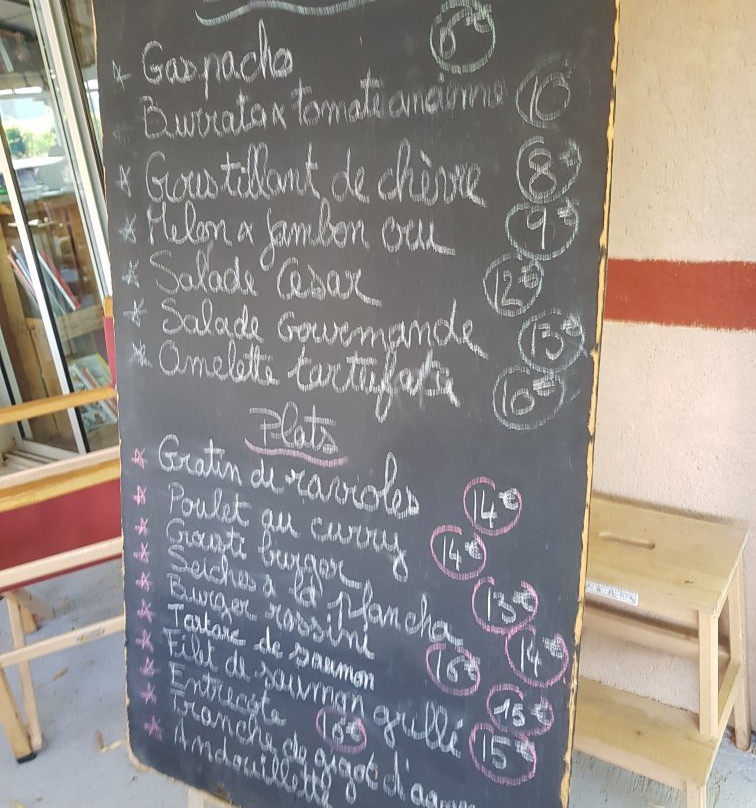 Gaspacho 6€
Burrata x tomate ananas 10
Croustillant de chèvre 8€
Melon x jambon cru 9€
Salade César 12€
Salade Gourmande 13€
Omelette tartufata 10€
Plats
Gratin de ravioles 14€
Poulet au curry 14€
Gousti burger 13€
Seiches à la plancha 14€
Burger rossini 16€
Tartare de saumon 15€
Filet de saumon grillé 15€
Entrecôte 16€
Tranche de gigot d'agneau
Andouillette